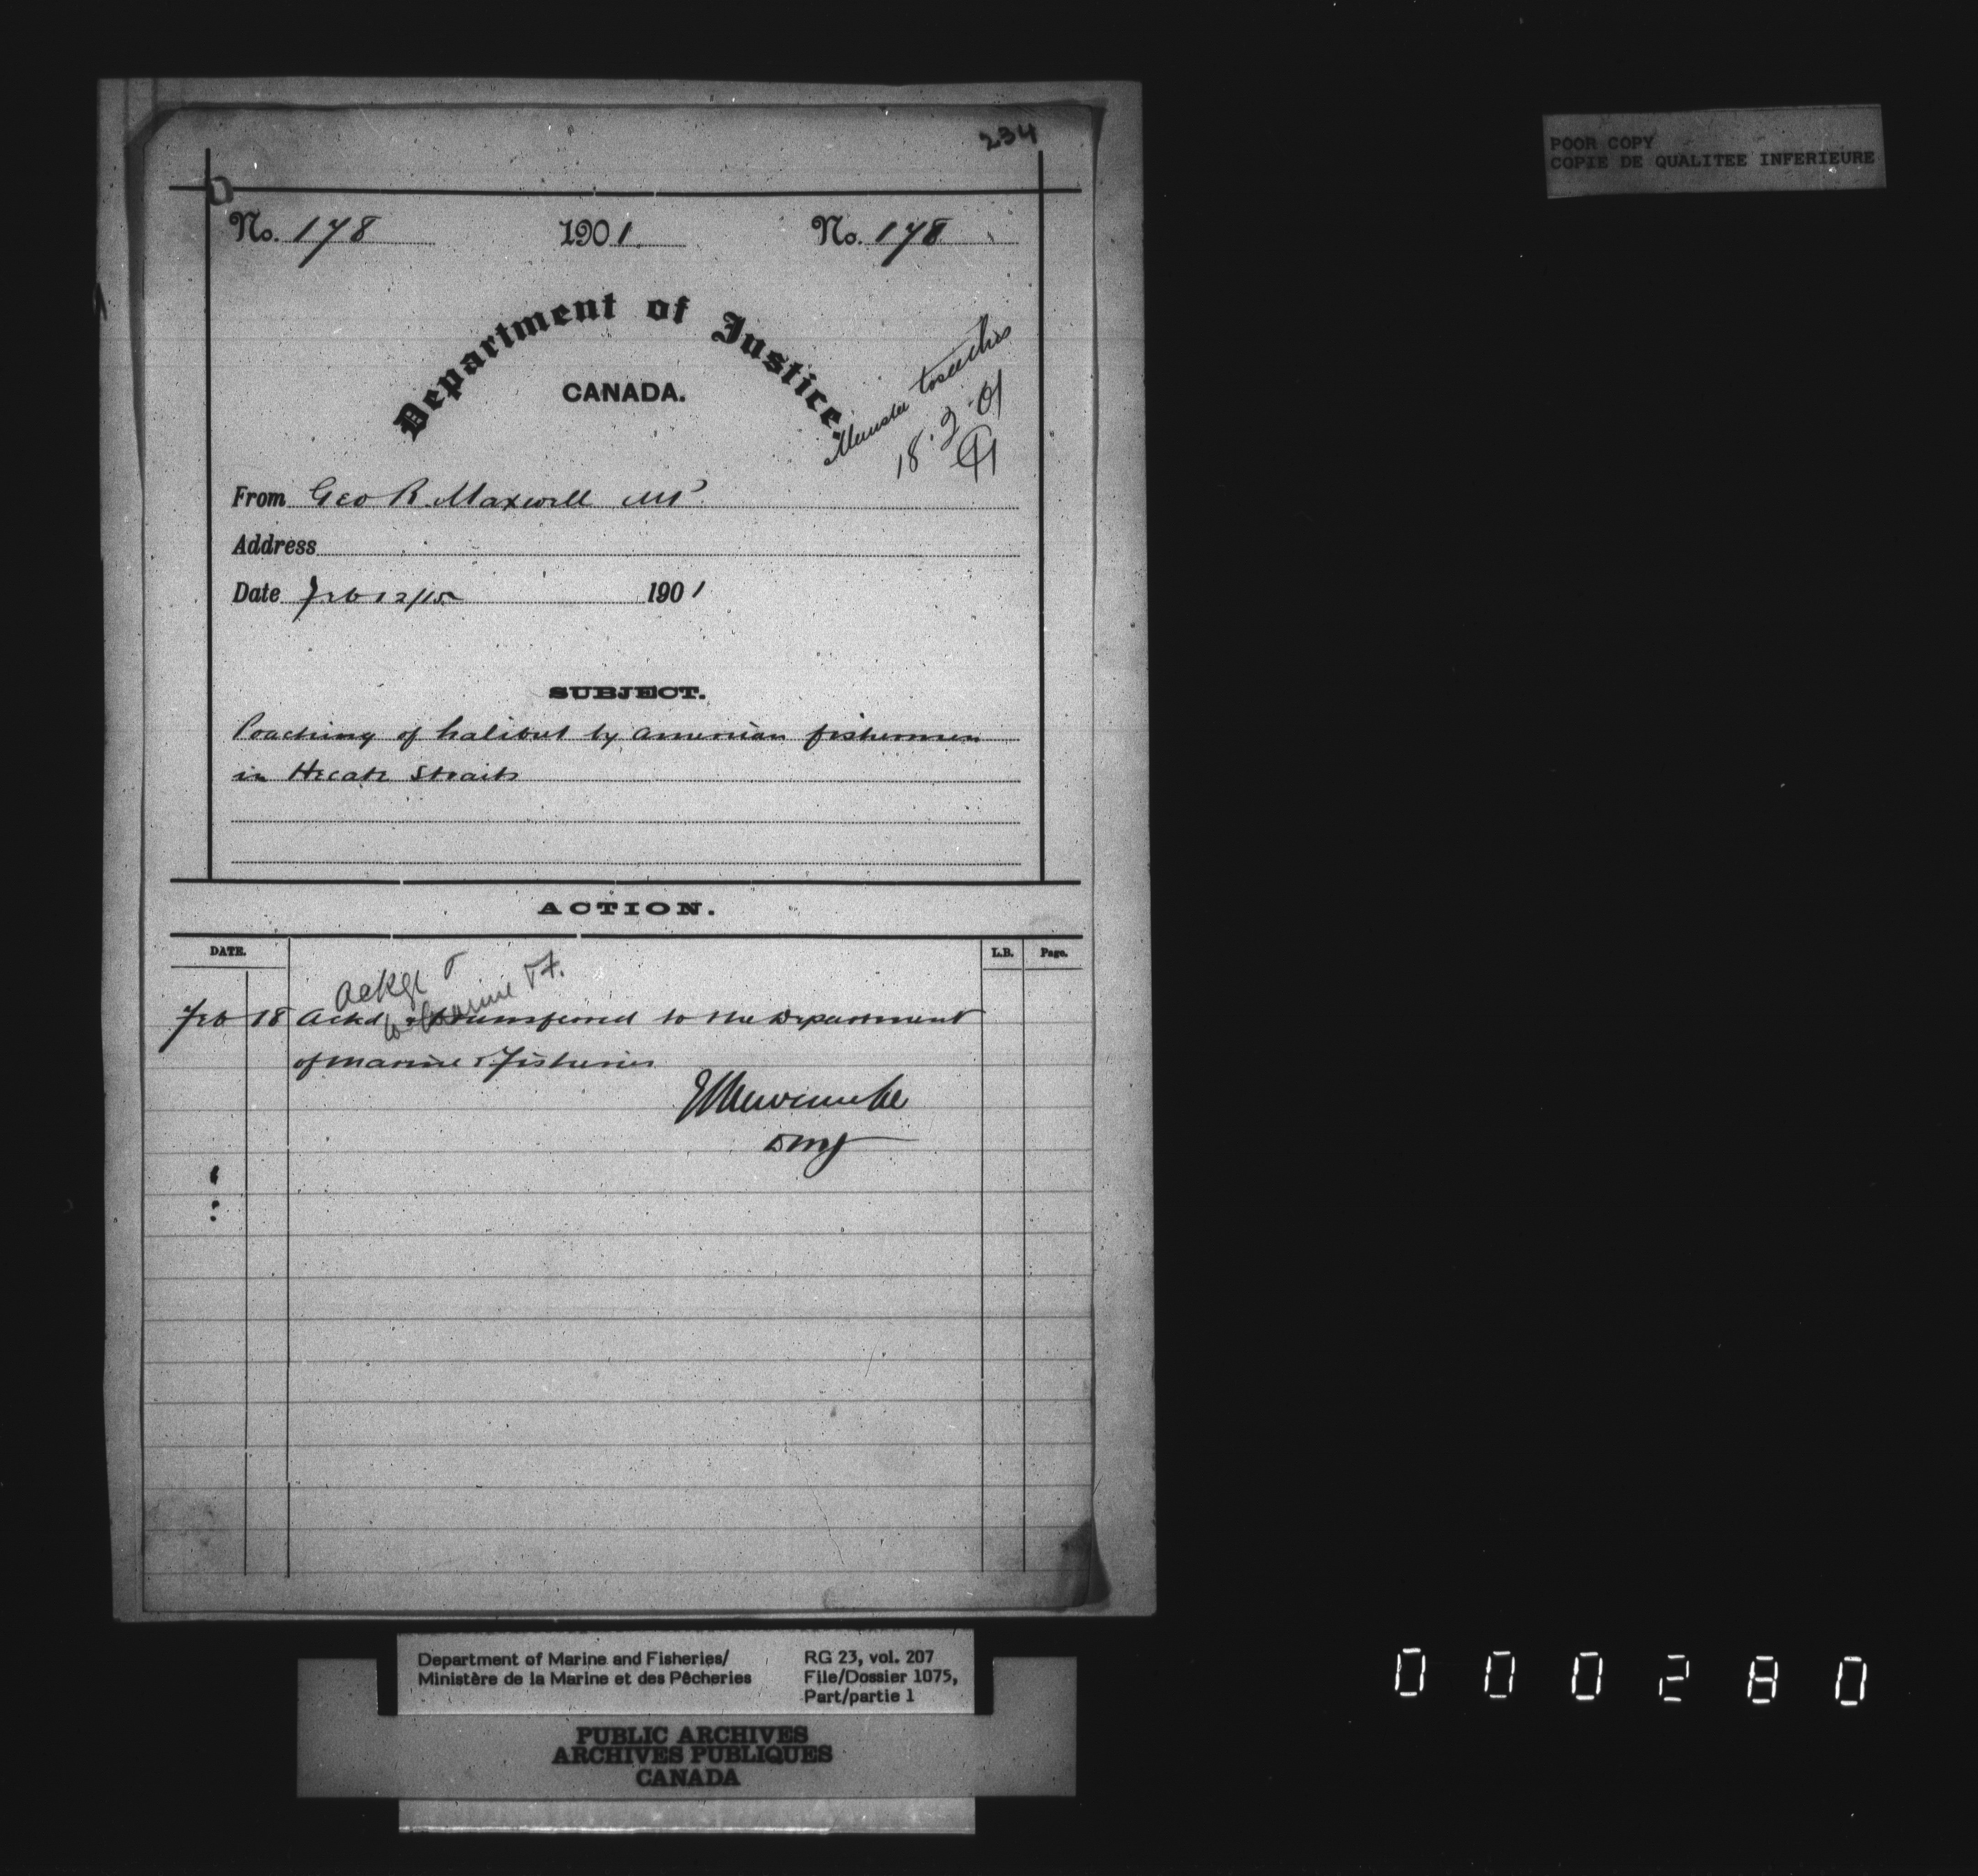 234
No. 178 1901 No. 178
Department of Justice.
CANADA.
Minister to see this
18.2.01
From Geo R. Maxwell MP
Address
Date Feb 12/15 1901
SUBJECT.
Poaching of halibut by American fishermen
in Hecate Straits
ACTION.
DATE. L.B. Page.
Ackge &
to Marine & F.
Feb 18 Ackd & transferred to the Department
of Marine & Fisheries
ELNewcombe
DMJ
POOR COPY
COPIE DE QUALITEE INFERIEURE
Department of Marine and Fisheries/
Ministère de la Marine et des Pêcheries
RG 23, vol. 207
File/Dossier 1075,
Part/partie 1
PUBLIC ARCHIVES
ARCHIVES PUBLIQUES
CANADA
000280